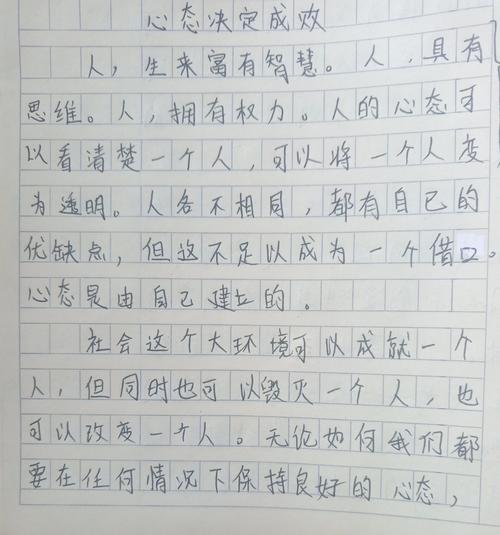 心态决定成效
人，生来富有智慧。人，具有
思维。人，拥有权力。人的心态可
以看清楚一个人，可以将一个人变
为透明。人各不相同，都有自己的
优缺点，但这不足以成为一个借口。
心态是由自己建立的。
社会这个大环境可以成就一个
人，但同时也可以毁灭一个人，也
可以改变一个人。无论如何我们都
要在任何情况下保持良好的心态，